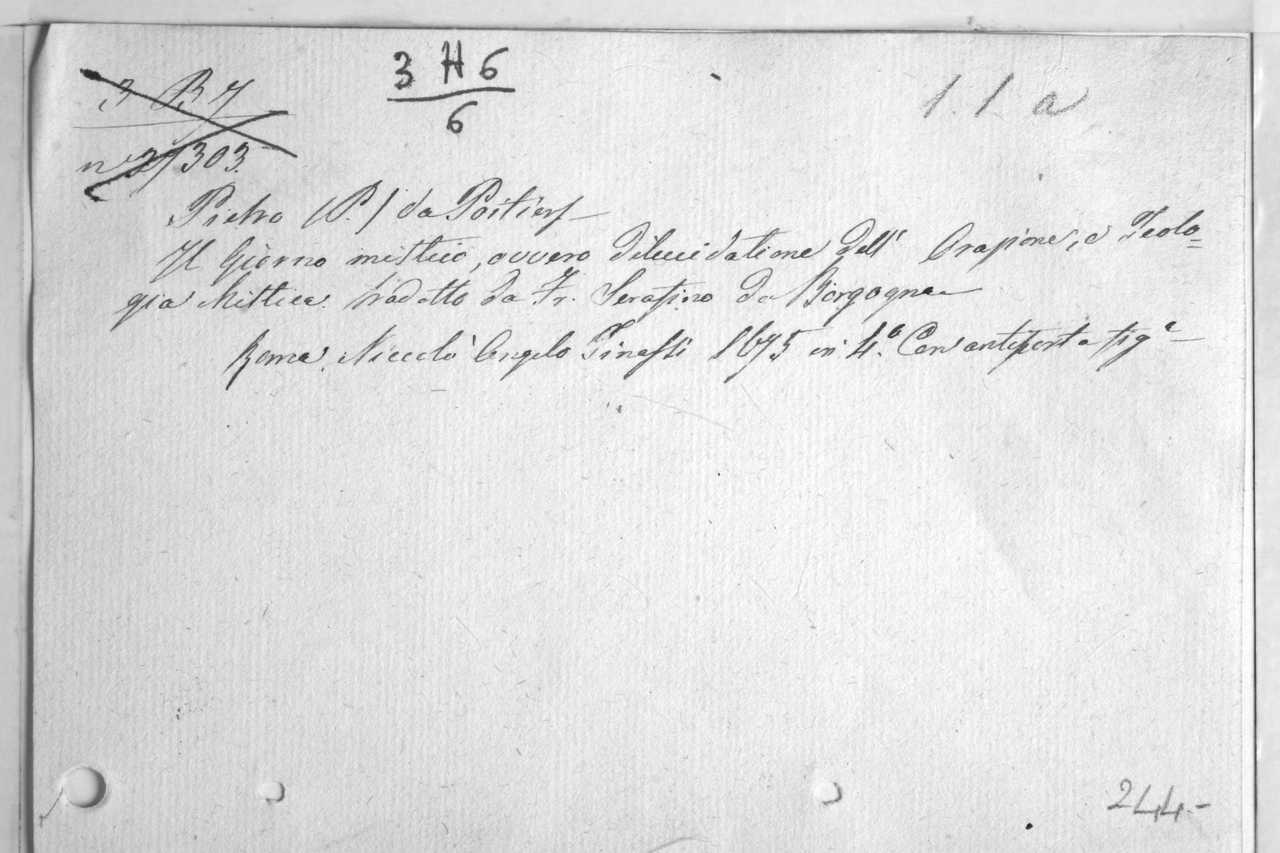 3 B 7
n 2/303.
3 H 6
6
1. 1. a
Pietro (P.) da Poitiers
Il Giorno mistico, ovvero dilucidatione dell' Orazione, e Teolo=
gia Mistica. Tradotto da Fr. Serafino da Borgogna
Roma. Niccolò Angelo Tinassi 1675 in 4.° Con antiporta figᵃ
244.-